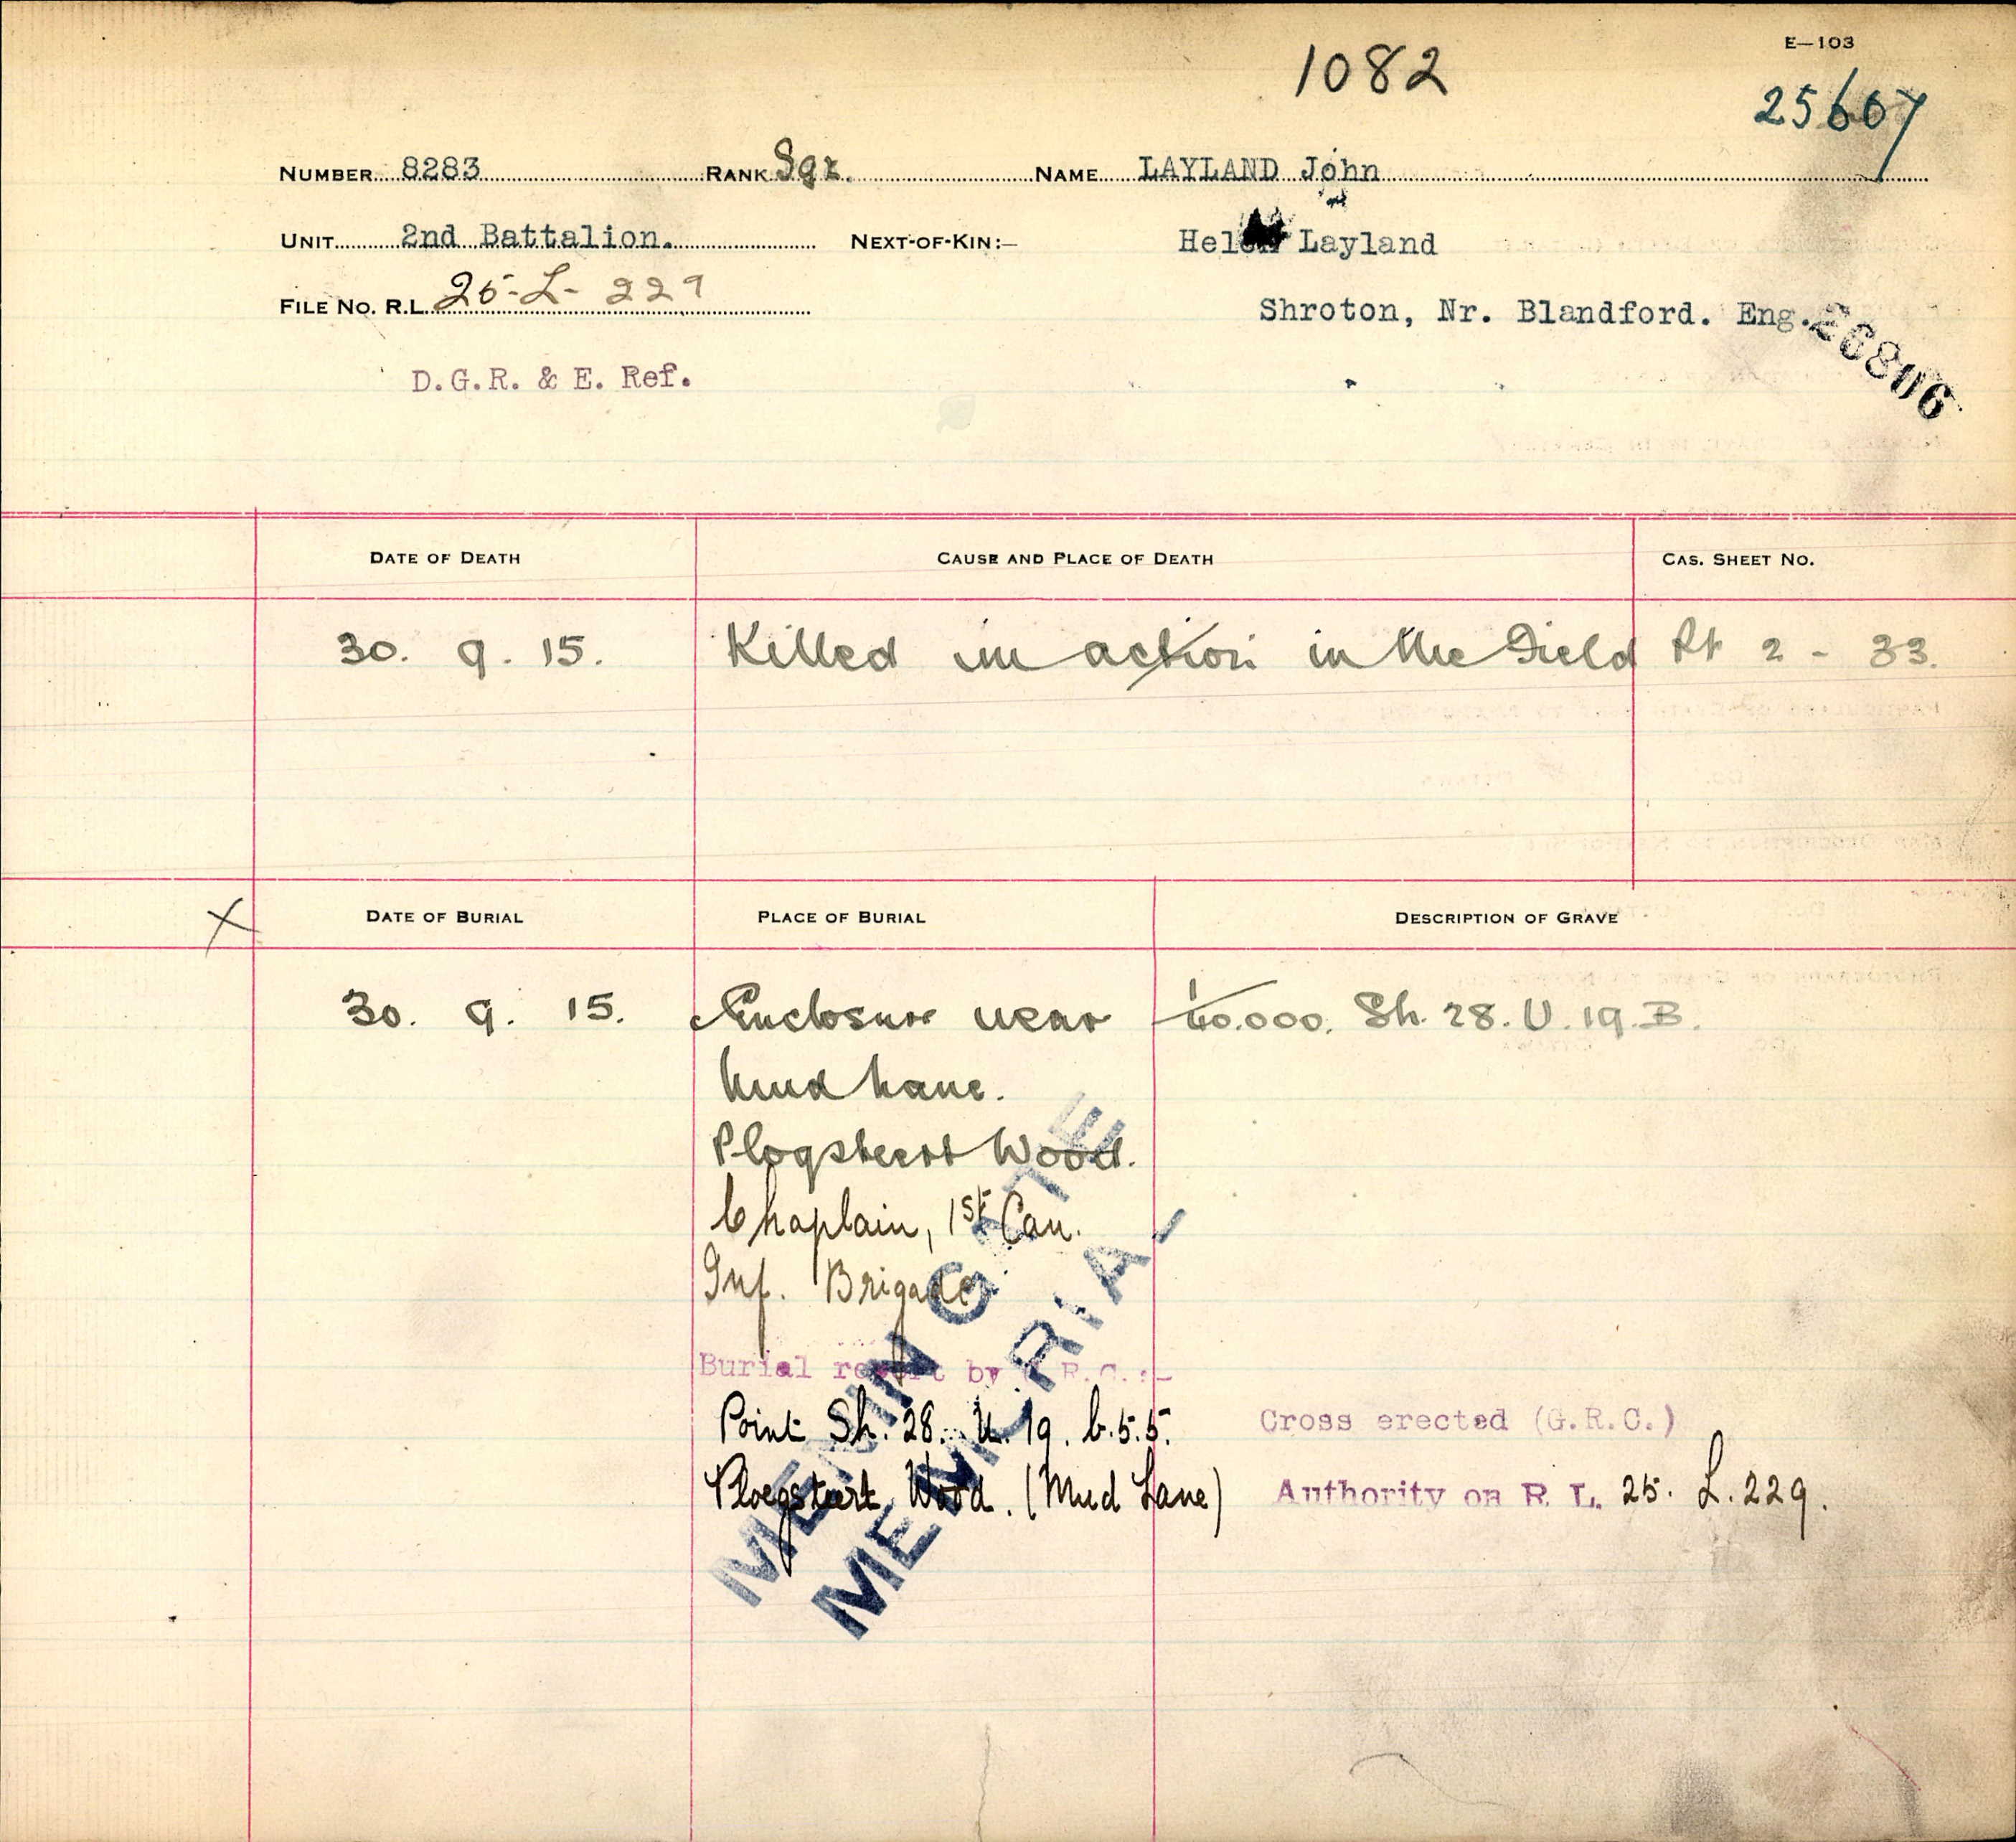 E—103
1082
25607
NUMBER 8283 RANK Sgt. NAME LAYLAND John
UNIT 2nd Battalion. NEXT-OF-KIN:— Helen Layland
FILE No. R.L. 25-L-229
Shroton, Nr. Blandford. Eng.
26806
D.G.R. & E. Ref.
DATE OF DEATH CAUSE AND PLACE OF DEATH CAS. SHEET NO.
30. 9. 15. Killed in action in the Field Pt 2 - 33.
X DATE OF BURIAL PLACE OF BURIAL DESCRIPTION OF GRAVE
30. 9. 15. Enclosure near 1/40.000. Sh. 28. U. 19. B.
Mud Lane.
Plogsteert Wood.
Chaplain, 1st Can.
Inf. Brigade
Burial report by G.R.C.:—
Point Sh. 28. U. 19. b.5.5. Cross erected (G.R.C.)
Ploegsteert Wood. (Mud Lane) Authority on R L. 25. L. 229.
MENIN GATE
MEMORIAL